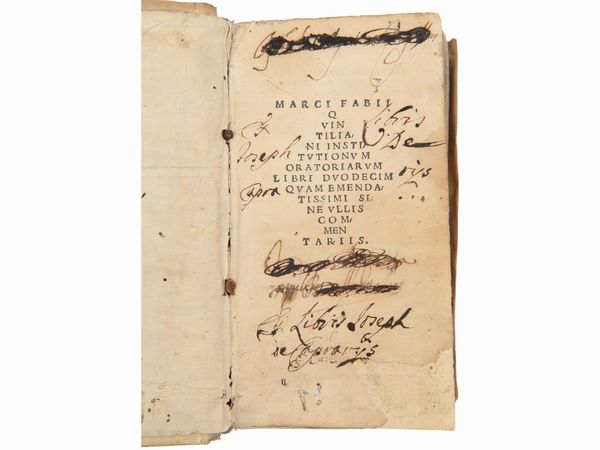 MARCI FABII
Q
VIN
TILIA/
NI INSTI
TVTIONVM
ORATORIARVM
LIBRI DVODECIM
QVAM EMENDA/
TISSIMI SI/
NE VLLIS
COM/
MEN
TARIIS.
Ex Libris
Joseph De
Capra rys
Ex Libris Joseph
de Caprarys